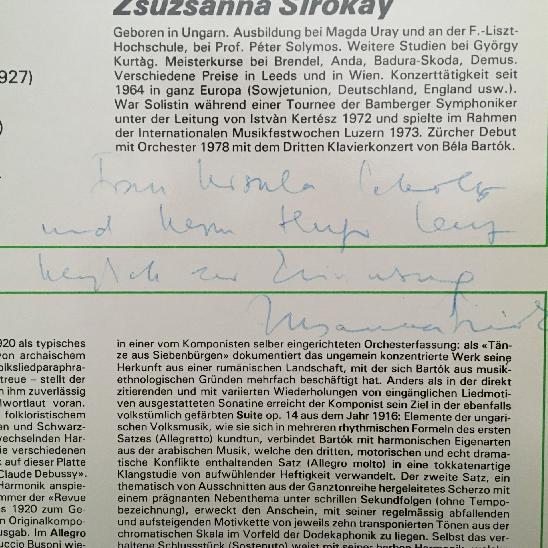 Zsuzsanna Sirokay
Geboren in Ungarn. Ausbildung bei Magda Uray und an der F.-Liszt-
Hochschule, bei Prof. Péter Solymos. Weitere Studien bei György
Kurtàg. Meisterkurse bei Brendel, Anda, Badura-Skoda, Demus.
Verschiedene Preise in Leeds und in Wien. Konzerttätigkeit seit
1964 in ganz Europa (Sowjetunion, Deutschland, England usw.).
War Solistin während einer Tournee der Bamberger Symphoniker
unter der Leitung von Istvàn Kertész 1972 und spielte im Rahmen
der Internationalen Musikfestwochen Luzern 1973. Zürcher Debut
mit Orchester 1978 mit dem Dritten Klavierkonzert von Béla Bartók.
1927)
)
Frau Ursula
und Herrn Hugo
herzlich zur Erinnerung
Zsuzsanna Sirokay
1920 als typisches
von archaischem
olksliedparaphra-
treue – stellt der
n ihm zuverlässig
lwortlaut voran.
folkloristischem
en und Schwarz-
wechselnden Har-
ie verschiedenen
auf dieser Platte
Claude Debussy».
Harmonik anspie-
mmer der «Revue
s 1920 zum Ge-
n Originalkompo-
usgab. Im Allegro
uccio Busoni wie-
in einer vom Komponisten selber eingerichteten Orchesterfassung: als «Tän-
ze aus Siebenbürgen» dokumentiert das ungemein konzentrierte Werk seine
Herkunft aus einer rumänischen Landschaft, mit der sich Bartók aus musik-
ethnologischen Gründen mehrfach beschäftigt hat. Anders als in der direkt
zitierenden und mit variierten Wiederholungen von eingänglichen Liedmoti-
ven ausgestatteten Sonatine erreicht der Komponist sein Ziel in der ebenfalls
volkstümlich gefärbten Suite op. 14 aus dem Jahr 1916: Elemente der ungari-
schen Volksmusik, wie sie sich in mehreren rhythmischen Formeln des ersten
Satzes (Allegretto) kundtun, verbindet Bartók mit harmonischen Eigenarten
aus der arabischen Musik, welche den dritten, motorischen und echt drama-
tische Konflikte enthaltenden Satz (Allegro molto) in eine tokkatenartige
Klangstudie von aufwühlender Heftigkeit verwandelt. Der zweite Satz, ein
thematisch von Ausschnitten aus der Ganztonreihe hergeleitetes Scherzo mit
einem prägnanten Nebenthema unter schrillen Sekundfolgen (ohne Tempo-
bezeichnung), erweckt den Anschein, mit seiner regelmässig abfallenden
und aufsteigenden Motivkette von jeweils zehn transponierten Tönen aus der
chromatischen Skala im Vorfeld der Dodekaphonik zu liegen. Selbst das ver-
haltene Schlussstück (Sostenuto) weist mit seiner